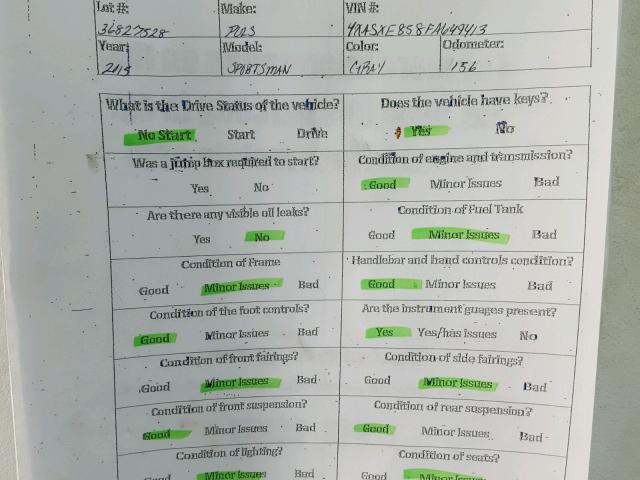 Lot #: Make: VIN #:
36827528 PULS 4XASXE858FA649413
Year: Model: Color: Odometer:
2015 SPORTSMAN GRAY 156
What is the Drive Status of the vehicle? Does the vehicle have keys?
No Start Start Drive Yes No
Was a jump box required to start? Condition of engine and transmission?
Yes No Good Minor Issues Bad
Are there any visible oil leaks? Condition of Fuel Tank
Yes No Good Minor Issues Bad
Condition of Frame Handlebar and hand controls condition?
Good Minor Issues Bad Good Minor Issues Bad
Condition of the foot controls? Are the instrument guages present?
Good Minor Issues Bad Yes Yes/has issues No
Condition of front fairings? Condition of side fairings?
Good Minor Issues Bad Good Minor Issues Bad
Condition of front suspension? Condition of rear suspension?
Good Minor Issues Bad Good Minor Issues Bad
Condition of lighting? Condition of seats?
Good Minor Issues Bad Good Minor Issues